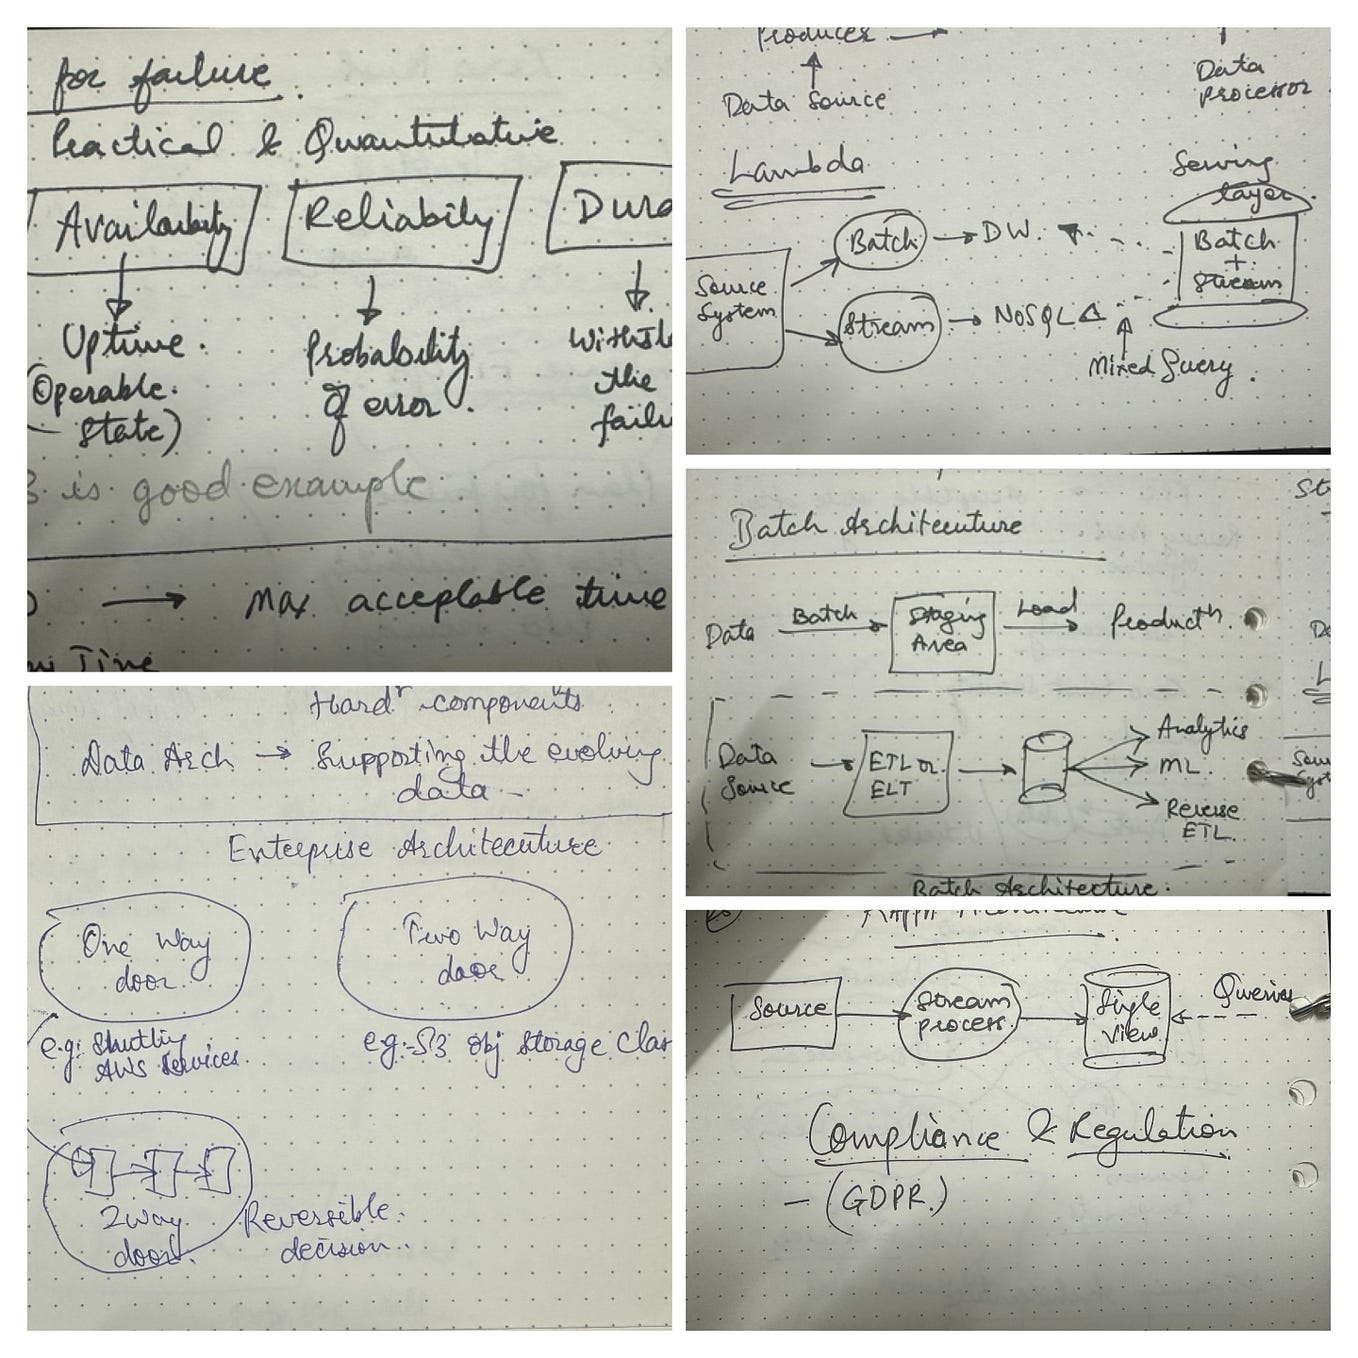 for failure.
Practical & Quantitative
Availability Reliabily Dura
Uptime. Probability Withst
(Operable. of error. the
State) failu
is good example
→ Max acceptable time
Time
Produces →
Data Source
Data
processor
Lambda
Serving
layer
Source
System
Batch → DW.
Stream → NoSQL
Batch
+
Stream
Mixed Query.
Batch Architecuture
Data Batch Staging
Area Load Productn.
Data
Source
ETL or
ELT
Analytics
ML
Reverse
ETL.
Batch Architecture.
St
Sour
Syst
Hardr components
Data Arch → Supporting the evolving
data
Enterprise Architecuture
One Way
door.
Two Way
door
e.g: Shutting
AWS Services.
e.g:-S3 obj Storage Clas
2way
door.
Reversible.
decision..
Source
Stream
process.
Single
View
Queries
Compliance & Regulation
- (GDPR.)